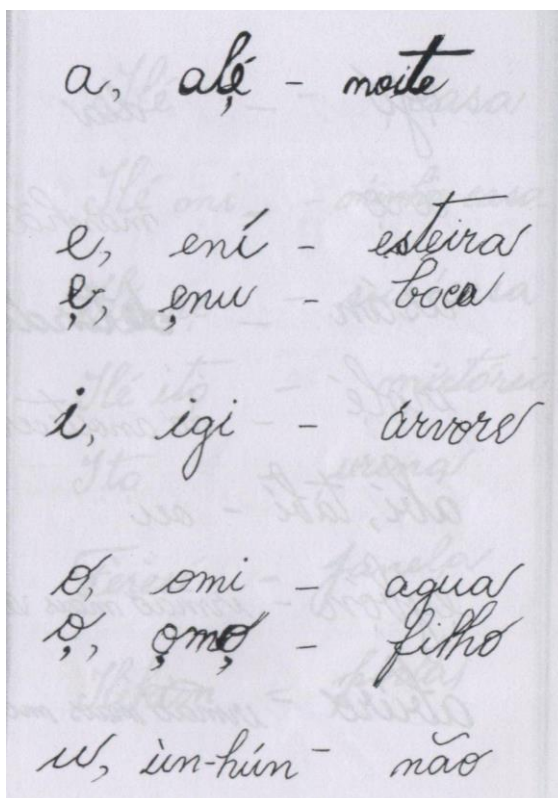 a, alẹ́ - noite
e, ení - esteira
ẹ, ẹnu - boca
i, igi - árvore
o, omi - agua
ọ, ọmọ - filho
u, ùn-hún - não